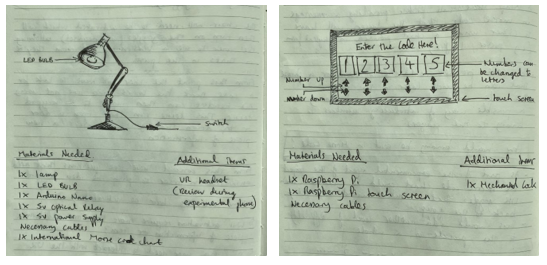 LED BULB
Switch
Materials Needed
1x lamp
1x LED BULB
1x Arduino Nano
1x 5v optical Relay
1x 5v power supply
Necenary cables
1x International Morse code chart
Additional items
VR headset
(Review during
experimental phase)
Enter the Code Here!
1 2 3 4 5
Number up
Number down
Numbers can
be changed to
letters
touch screen
Materials Needed
1x Raspberry Pi
1x Raspberry Pi touch screen
Necenary cables
Additional items
1x Mechanical Lock